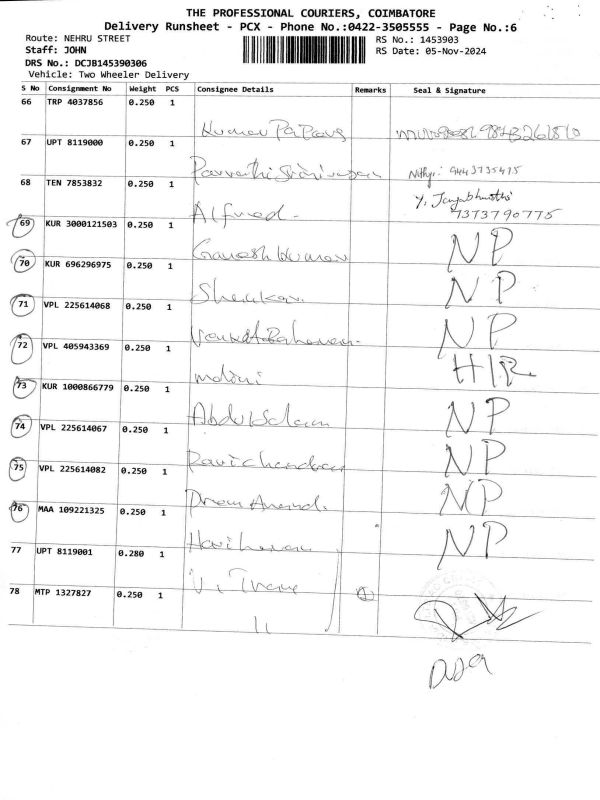 THE PROFESSIONAL COURIERS, COIMBATORE
Delivery Runsheet - PCX - Phone No.:0422-3505555 - Page No.:6
Route: NEHRU STREET
RS No.: 1453903
Staff: JOHN
RS Date: 05-Nov-2024
DRS No.: DCJB145390306
Vehicle: Two Wheeler Delivery
S No Consignment No Weight PCS Consignee Details Remarks Seal & Signature
66 TRP 4037856 0.250 1
Kumar
67 UPT 8119000 0.250 1
68 TEN 7853832 0.250 1
7373790775
Alfred.
69 KUR 3000121503 0.250 1 NP
Ganesh Kumar
70 KUR 696296975 0.250 1 NP
71 VPL 225614068 0.250 1 NP
72 VPL 405943369 0.250 1
73 KUR 1000866779 0.250 1 NP
Abdul Salam
74 VPL 225614067 0.250 1 NP
Ravichandran
75 VPL 225614082 0.250 1 NP
76 MAA 109221325 0.250 1 NP
Hariharan
77 UPT 8119001 0.280 1
78 MTP 1327827 0.250 1
11